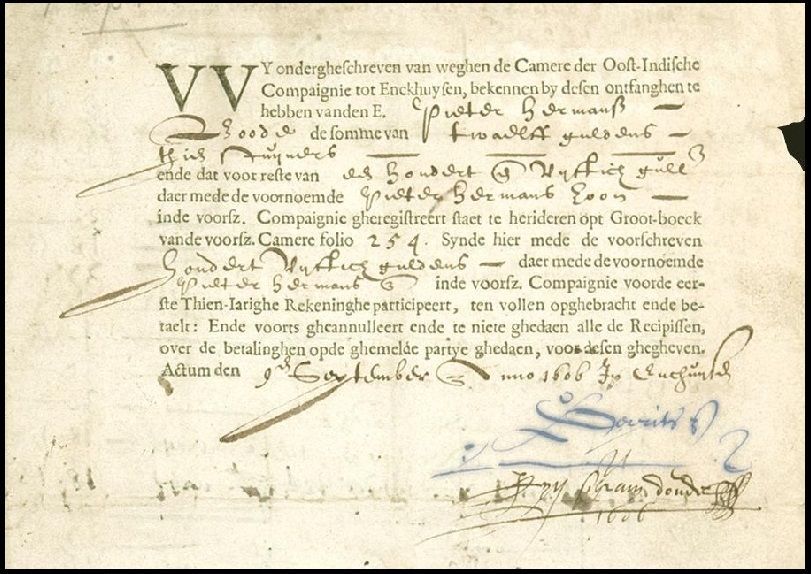 VVY ondergheschreven van weghen de Camere der Oost-Indische
Compaignie tot Enckhuysen, bekennen by desen ontfanghen te
hebben vanden E. Pieter Hermansz
de somme van twaelff guldens
thien stuyvers
ende dat voor reste van hondert Vyftich gull
daer mede de voornoemde Pieter Hermans zoon
inde voorsz. Compaignie gheregistreert staet te herideren opt Groot-boeck
vande voorsz. Camere folio 254. Synde hier mede de voorschreven
hondert Vyftich guldens daer mede de voornoemde
Pieter Hermans inde voorsz. Compaignie voorde eer-
ste Thien-Iarighe Rekeninghe participeert, ten vollen opghebracht ende be-
taelt: Ende voorts gheannulleert ende te niete ghedaen alle de Recipissen,
over de betalinghen opde ghemelde partye ghedaen, voor desen ghegheven.
Actum den 9 September Anno 1606
1606